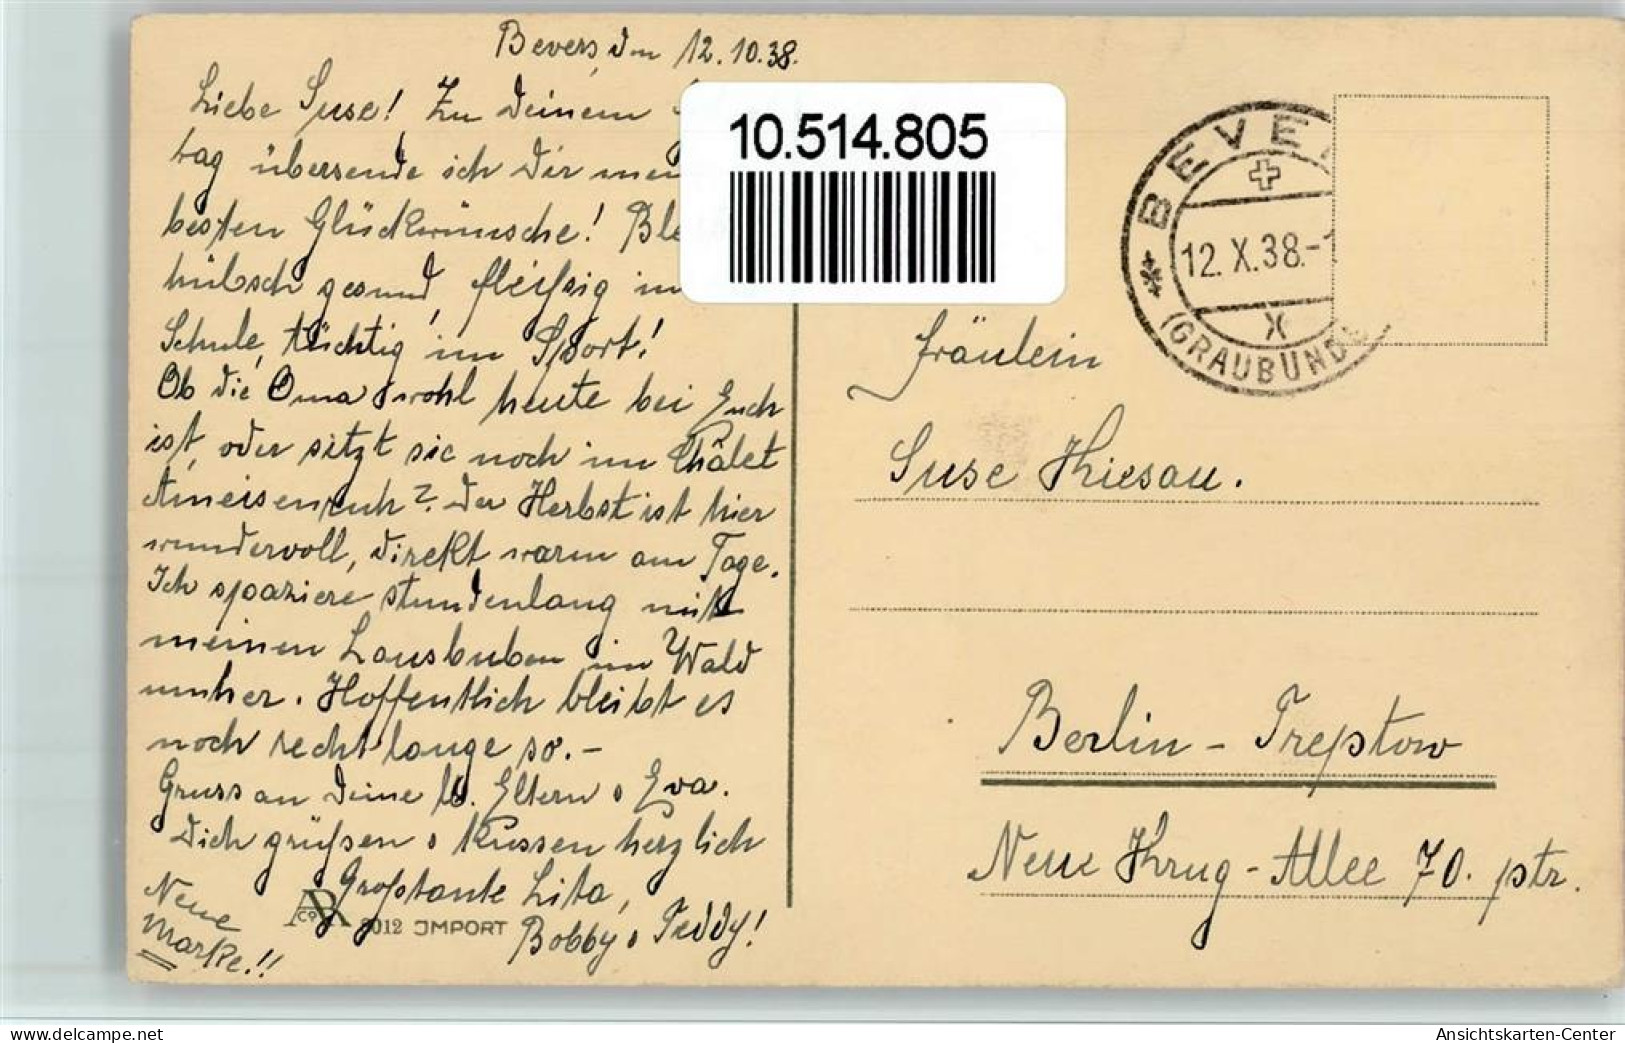 Bevers, den 12.10.38.
Liebe Suse! Zu Deinem
tag übersende ich Dir
besten Glückwünsche!
hübsch gesund, fleissig
Schule, tüchtig im Sport!
Ob die Oma wohl heute bei Euch
ist, oder sitzt sie noch im Châlet
Ameisenruh? Der Herbst ist hier
wundervoll, direkt warm am Tage.
Ich spaziere stundenlang mit
meinen Lausbuben im Wald
umher. Hoffentlich bleibt es
noch recht lange so.-
Gruss an Deine lb. Eltern u Eva.
Dich grüssen u küssen herzlich
Grosstante Lita,
Bobby u Teddy!
Neue
Marke!!
ARCo 2012 IMPORT
10.514.805
BEVE
12.X.38.-
X
(GRAUBÜND
Fräulein
Suse Kiesau.
Berlin - Treptow
Neue Krug - Allee 70. ptr.
www.delcampe.net
Ansichtskarten-Center